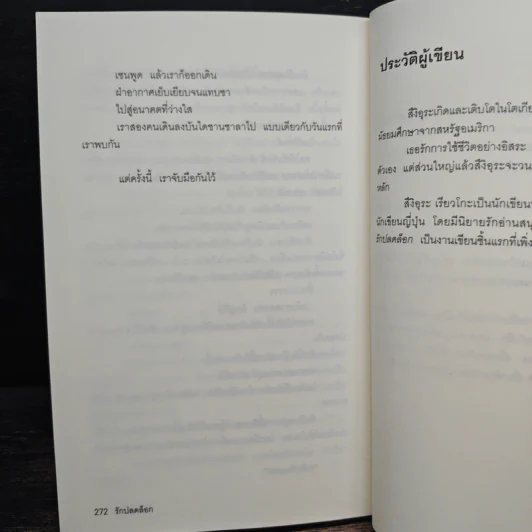 เซนพูด แล้วเราก็ออกเดิน
ฝ่าอากาศเย็บเยียบจนแทบชา
ไปสู่อนาคตที่ว่างใส
เราสองคนเดินลงบันไดชานชาลาไป แบบเดียวกับวันแรกที่
เราพบกัน
แต่ครั้งนี้ เราจับมือกันไว้
272 รักปลดล็อก
ประวัติผู้เขียน
สึงิอุระเกิดและเติบโตในโตเกีย
มัธยมศึกษาจากสหรัฐอเมริกา
เธอรักการใช้ชีวิตอย่างอิสระ
ตัวเอง แต่ส่วนใหญ่แล้วสึงิอุระจะวน
หลัก
สึงิอุระ เรียวโกะเป็นนักเขียน
นักเขียนญี่ปุ่น โดยมีนิยายรักอ่านสนุ
รักปลดล็อก เป็นงานเขียนชิ้นแรกที่เพิ่ง